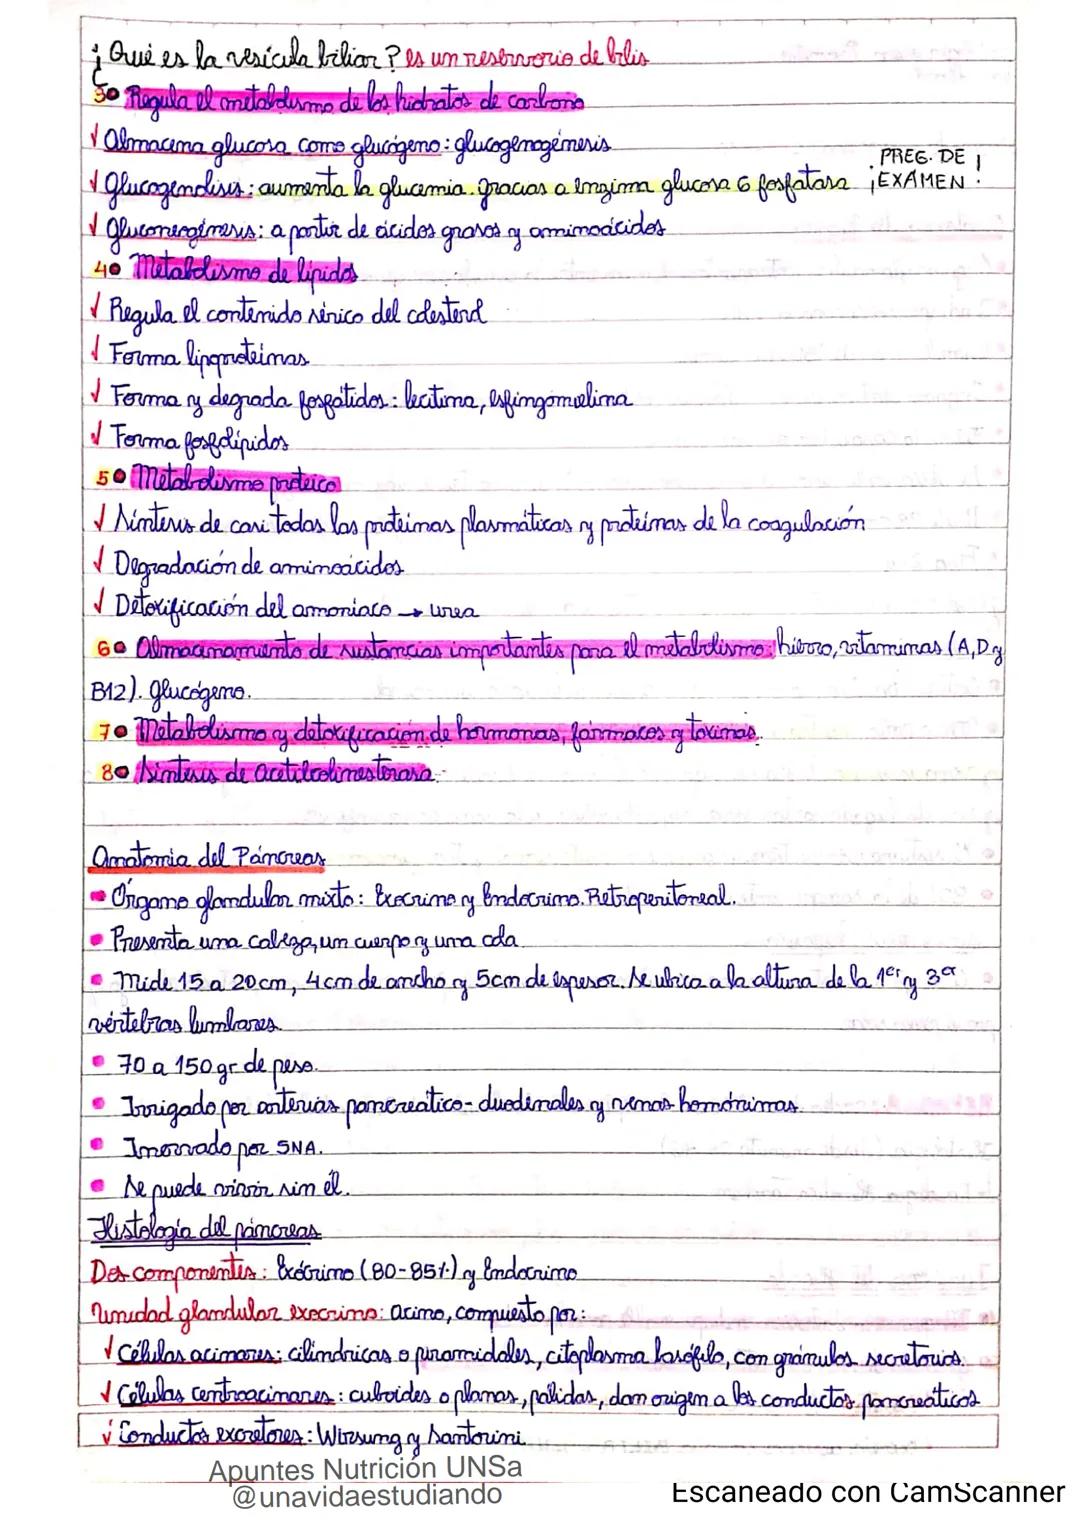 ¿Qué es la vesícula biliar? es un reservorio de bilis
3• Regula el metabolismo de los hidratos de carbono
✓ Almacena glucosa como glucógeno: glucogenogénesis
✓ Glucogenolisis: aumenta la glucemia gracias a enzima glucosa 6 fosfatasa ¡PREG. DE EXÁMEN!
✓ Gluconeogénesis: a partir de ácidos grasos y aminoácidos
4• Metabolismo de lípidos
✓ Regula el contenido sérico del colesterol
✓ Forma lipoproteínas
✓ Forma y degrada fosfátidos: lecitina, esfingomielina
✓ Forma fosfolípidos
5• Metabolismo proteico
✓ Síntesis de casi todas las proteínas plasmáticas y proteínas de la coagulación
✓ Degradación de aminoácidos
✓ Detoxificación del amoniaco → urea
6• Almacenamiento de sustancias importantes para el metabolismo: hierro, vitaminas (A, D y
B12). glucógeno.
7• Metabolismo y detoxificación de hormonas, fármacos y toxinas.
8• Síntesis de Acetilcolinesterasa
Anatomia del Páncreas
• Órgano glandular mixto: Exocrino y Endocrino. Retroperitoneal.
• Presenta una cabeza, un cuerpo y una cola
• Mide 15 a 20cm, 4cm de ancho y 5cm de espesor. Se ubica a la altura de la 1er y 3er
vértebras lumbares
• 70 a 150gr de peso.
• Irrigado por arterias pancreático-duodenales y venas homónimas.
• Inervado por SNA.
• Se puede vivir sin él.
Histología del páncreas
Dos componentes: Exócrino (80-85%) y Endocrino
Unidad glandular exocrina: acino, compuesto por:
✓ Células acinares: cilíndricas o piramidales, citoplasma basófilo, con gránulos secretorios.
✓ Células centroacinares: cuboides o planas, pálidas, dan origen a los conductos pancreáticos
✓ Conductos excretores: Wirsung y Santorini
Apuntes Nutrición UNSa
@unavidaestudiando
Escaneado con CamScanner